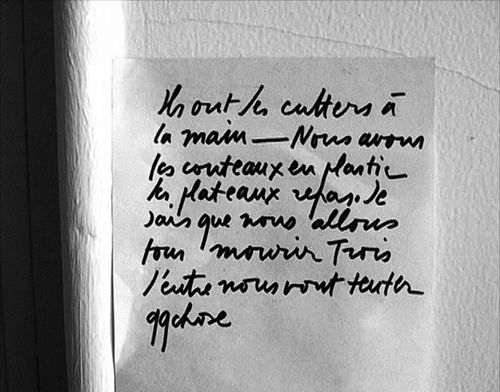 Ils ont les cutters à
la main — Nous avons
les couteaux en plastic
les plateaux repas. Je
sais que nous allons
tous mourir Trois
d'entre nous vont tenter
qqchose